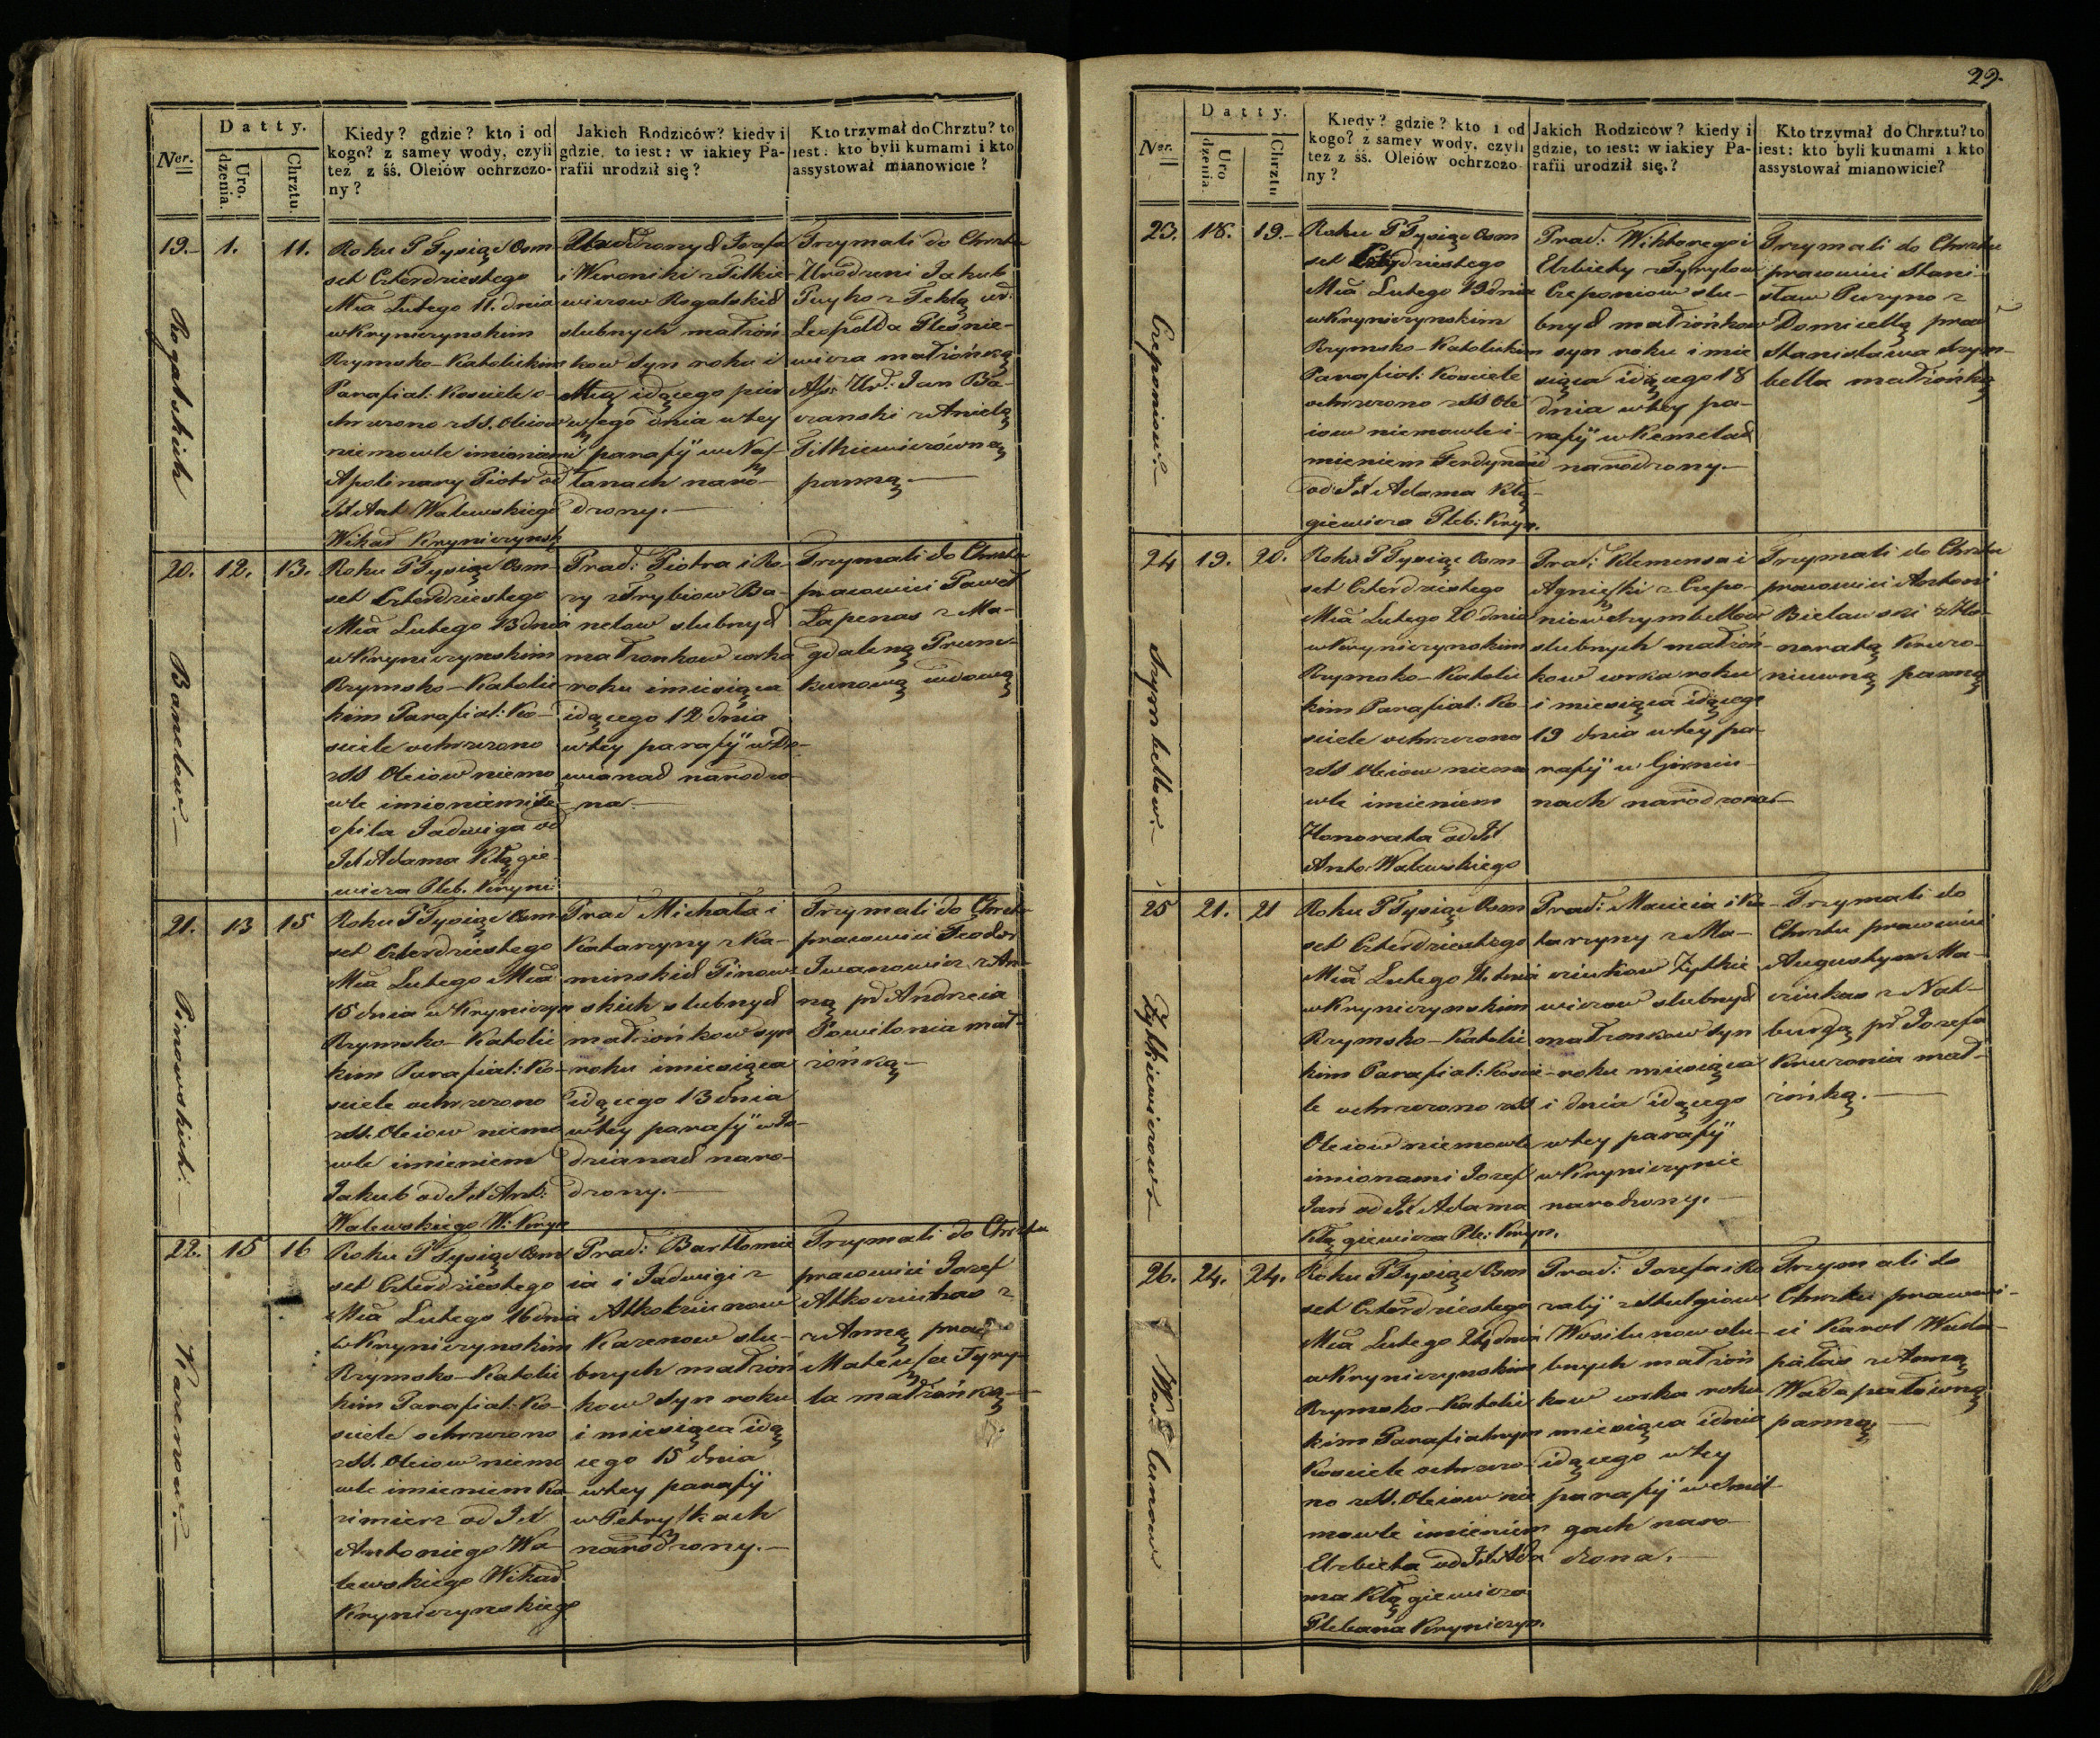 29.
Datty.
Ner.
Uro.
dzenia.
Chrztu.
Kiedy? gdzie? kto i od
kogo? z samey wody, czyli
też z śś. Oleiów ochrzczo-
ny?
Jakich Rodziców? kiedy i
gdzie, to iest: w iakiey Pa-
rafii urodził się?
Kto trzymał do Chrztu? to
iest: kto byli kumami i kto
assystował mianowicie?
19.
1.
11.
Rogalskich
Roku P Tysiąc Osm-
set Czterdziestego
Mca Lutego 11. dnia
w Kryniczynskim
Rzymsko-Katolickim
Parafial: Kosciele o-
chrzczono z SS. Oleiow
niemowle imionami
Apolinary Piotr od
JX Ant Walewskiego
Wikad Kryniczynsk
Urodzonych Jozefa
i Weroniki z Titkie-
wiczow Rogalskich
slubnych małżoń-
kow syn roku i
Mca idącego pier-
wszego dnia w tey
parafij w Nosz-
łanach naro-
dzony.
Trzymali do Chrztu
Urodzeni Jakub
Puyko z Teklą ur:
Leopolda Plesnie-
wicza małżońką
Ass: Urd: Jan Ba-
ranski z Anielą
Titkiewiczówną
panną.
20.
12.
13.
Banelow.
Roku P Tysiąc Osm-
set Czterdziestego
Mca Lutego 13 dnia
w Kryniczynskim
Rzymsko-Katolic-
kim Parafial: Ko-
sciele ochrzczono
z SS Oleiow niemo
wle imionami Te-
ofila Jadwiga od
JX Adama Kłągie-
wicza Pleb. Kryni
Prac: Piotra i Ro-
zy z Trybiow Ba-
nelow slubnych
małżonkow corka
roku i miesiąca
idącego 12 dnia
w tey parafij w Do-
wianach narodzo-
na.
Trzymali do Chrztu
pracowici Paweł
Łapenas z Ma-
gdaleną Trum-
kunową wdową
21.
13
15
Pinowskich.
Roku P Tysiąc Osm
set Czterdziestego
Mca Lutego Mca
15 dnia w Kryniczyn
Rzymsko-Katolic
kim Parafial: Ko-
sciele ochrzczono
z SS. Oleiow niemo
wle imieniem
Jakub od JX Ant:
Walewskiego W: Kryn
Prac Michała i
Katarzyny z Ka-
minskich Pinow-
skich slubnych
małżońkow syn
roku i miesiąca
idącego 13 dnia
w tey parafij w Jo-
dzianach naro-
dzony.
Trzymali do Chrztu
pracowici Teodor
Iwanowicz z An-
ną pr Andrzeia
Powilonia mał-
żońką.
22.
15
16
Karenow.
Roku P Tysiąc Osm
set Czterdziestego
Mca Lutego 16 dnia
w Kryniczynskim
Rzymsko-Katolic
kim Parafial: Ko-
sciele ochrzczono
z SS. Oleiow niemo
wle imieniem Ka-
zimierz od JX
Antoniego Wa-
lewskiego Wikad
Kryniczynskiego
Prac: Bartłomie
ia i Jadwigi z
Atkociunow
Karenow slu-
bnych małżoń
kow syn roku
i miesiąca idą
cego 15 dnia
w tey parafij
w Petryszkach
narodzony.
Trzymali do Chrztu
pracowici Jozef
Atkociunas z
z Anną prac
Mateusza Tyry-
la małżońką
Datty.
Ner.
Uro
dzenia.
Chrztu
Kiedy? gdzie? kto i od
kogo? z samey wody, czyli
też z śś. Oleiów ochrzczo
ny?
Jakich Rodziców? kiedy i
gdzie, to iest: w iakiey Pa-
rafii urodził się.?
Kto trzymał do Chrztu? to
iest: kto byli kumami i kto
assystował mianowicie?
23.
18.
19.
Czeponiow.
Roku P Tysiąc Osm
set Czterdziestego
Mca Lutego 19 dnia
w Kryniczynskim
Rzymsko-Katolickim
Parafial: Kosciele
ochrzczono z SS Ole
iow niemowle i-
mieniem Ferdynand
od JX Adama Kłą-
giewicza Pleb: Kryn.
Prac: Wiktorego i
Elzbiety z Tyrylow
Czeponiow slu-
bnych małżońkow
syn roku i mie
siąca idącego 18
dnia w tey pa-
rafij w Kemelach
narodzony.
Trzymali do Chrztu
pracowici Stani-
sław Puzyno z
Domicellą prac
Stanisława Szym-
bella małżońką
24
19.
20.
Szymbellow.
Roku P Tysiąc Osm-
set Czterdziestego
Mca Lutego 20 dnia
w Krynicznynskim
Rzymsko-Katolic
kim Parafial: Ko-
sciele ochrzczono
z SS Oleiow niemo
wle imieniem
Honorata od JX
Anto: Walewskiego
Prac: Klemensa i
Agnieszki z Czepo-
niow Szymbellow
slubnych małżoń-
kow corka roku
i miesiąca idącego
19 dnia w tey pa-
rafij w Girniu-
nach narodzona
Trzymali do Chrztu
pracowici Antoni
Bielawski z Ho-
noratą Kruco-
niuwną panną
25
21.
21
Zytkiewiczow
Roku P Tysiąc Osm
set Czterdziestego
Mca Lutego 21 dnia
w Krynicznynskim
Rzymsko-Katolic
kim Parafial: Kosc-
le ochrzczono z SS
Oleiow niemowle
imionami Jozef
Jan od JX Adama
Kłągiewicza Ple: Kryn.
Prac: Macieia i Ka-
tarzyny z Ma-
ciukow Zytkie
wiczow slubnych
małżonkow syn
roku miesiąca
i dnia idącego
w tey parafij
w Kryniczynie
narodzony.
Trzymali do
Chrztu pracowici
Augustyn Ma-
ciukas z Wal-
burgą pr Jozefa
Kruconia mał-
żońką.
26.
24.
24.
Wosilunow
Roku P Tysiąc Osm
set Czterdziestego
Mca Lutego 24 dnia
w Krynicznynskim
Rzymsko-Katolic
kim Parafialnym
Kosciele ochrzczo-
no z SS. Oleiow nie
mowle imieniem
Elzbieta od JX Ada
ma Kłągiewicza
Plebana Kryniczyn.
Prac: Jozefa i Ro
zalij z Stulgiow
Wosilunow slu-
bnych małżoń
kow corka roku
miesiąca i dnia
idącego w tey
parafij w Smil-
gach naro-
dzona.
Trzymali do
Chrztu pracowi-
ci Karol Wada-
palas z Anną
Wadapalówną
panną.